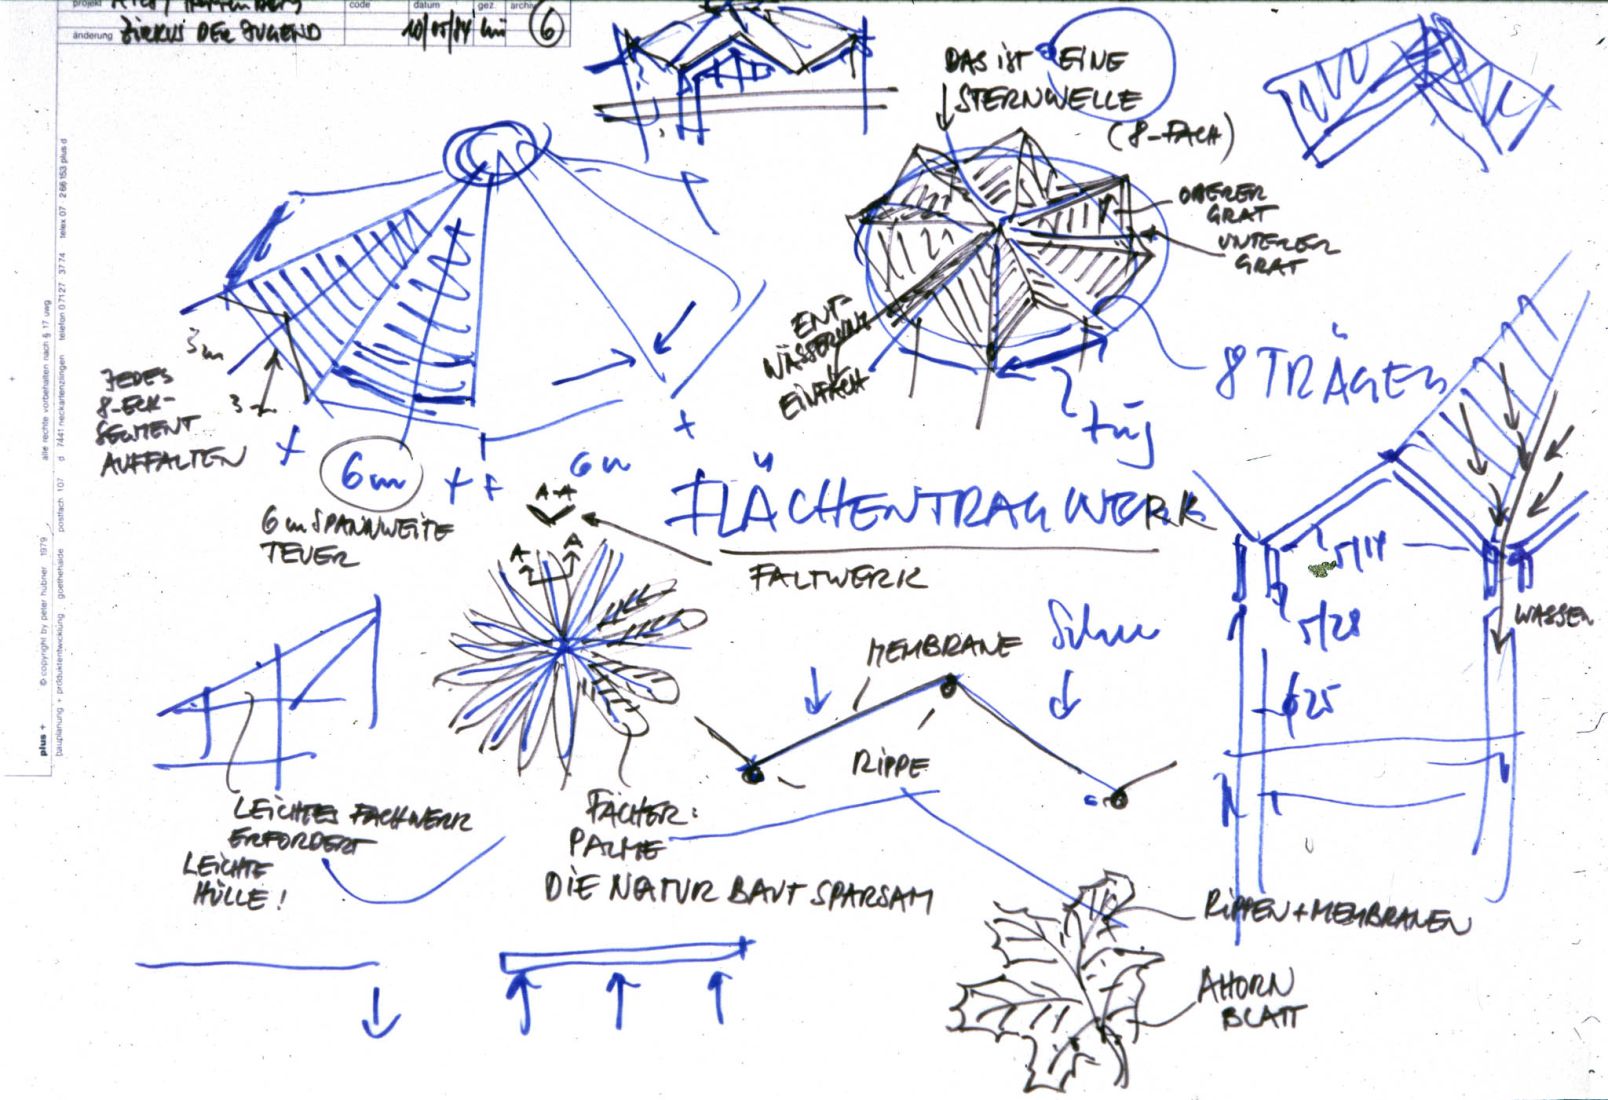 projekt
code
datum
gez.
archiv
änderung ZIRKUS DER JUGEND
6
DAS IST EINE
STERNWELLE
(8-FACH)
OBERER
GRAT
UNTERER
GRAT
ENT-
WÄSSERUNG
EINFACH
8 TRÄGER
Zug
3m
3m
JEDES
8-ECK-
SEGMENT
AUFFALTEN
6m
6m
6m SPANNWEITE
TEUER
A-A
A
A
FLÄCHENTRAGWERK
FALTWERK
5/14
5/28
WASSER
ø25
MEMBRANE
RIPPE
LEICHTES FACHWERK
ERFORDERT
LEICHTE
HÜLLE!
FÄCHER:
PALME
DIE NATUR BAUT SPARSAM
RIPPEN+MEMBRANEN
AHORN
BLATT
plus +
© copyright by peter hübner 1979
alle rechte vorbehalten nach § 17 uwg
bauplanung + produktentwicklung goethehalde postfach 107 d 7441 neckartenzlingen telefon 07127 3774 telex 07 266153 plus d